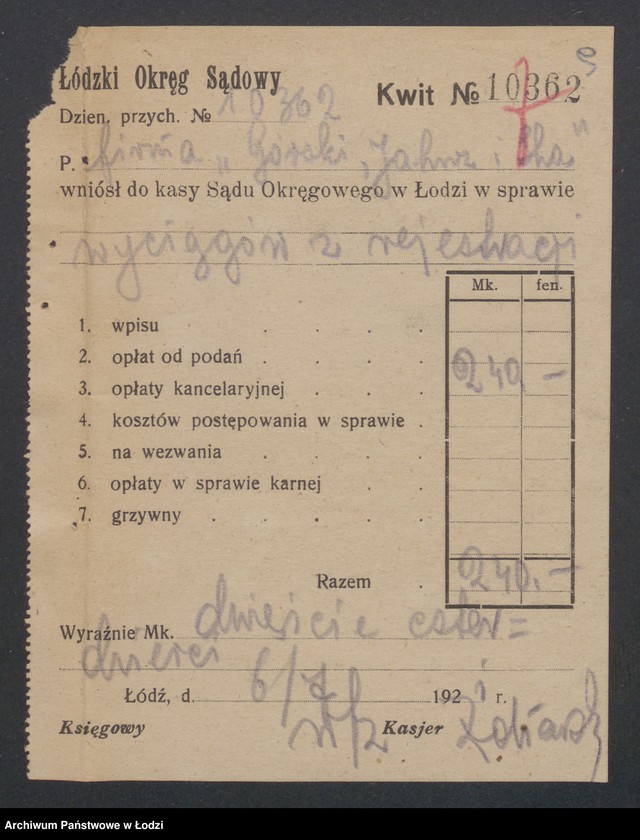 Łódzki Okręg Sądowy
Kwit № 10362
Dzien. przych. № 10362
P. firma „Górski, i Ska"
wniósł do kasy Sądu Okręgowego w Łodzi w sprawie
wyciągów z rejestracji
Mk. fen.
1. wpisu
2. opłat od podań
240 —
3. opłaty kancelaryjnej
4. kosztów postępowania w sprawie
5. na wezwania
6. opłaty w sprawie karnej
7. grzywny
Razem 240. —
Wyraźnie Mk. dwieście czter=
dzieści
Łódź, d. 6/7 1921 r.
Księgowy Kasjer
Archiwum Państwowe w Łodzi